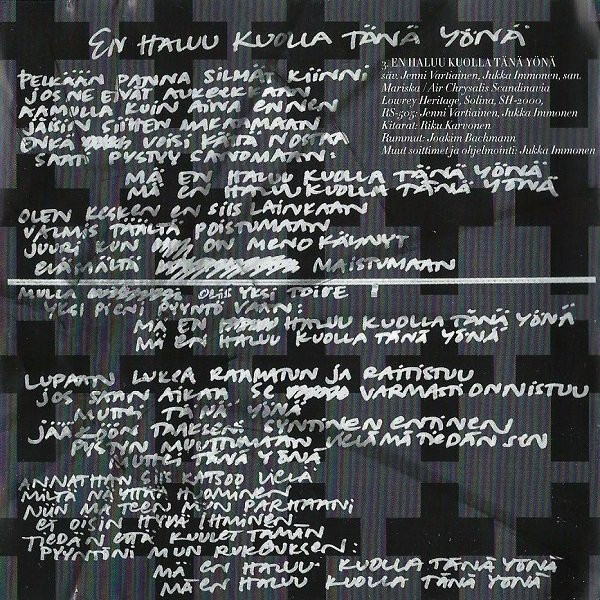 EN HALUU KUOLLA TÄNÄ YÖNÄ
3. EN HALUU KUOLLA TÄNÄ YÖNÄ
säv. Jenni Vartiainen, Jukka Immonen, san.
Mariska / Air Chrysalis Scandinavia
Lowrey Heritage, Solina, SH-2000,
RS-505: Jenni Vartiainen, Jukka Immonen
Kitarat: Riku Karvonen
Rummut: Joakim Bachmann
Muut soittimet ja ohjelmointi: Jukka Immonen
PELKÄÄN PANNA SILMÄT KIINNI
JOS NE EIVÄT AUKEEKKAAN
AAMULLA KUIN AINA ENNEN
JÄISIN SIIHEN MAKAAMAAN
ENKÄ VOISI KÄTTÄ NOSTAA
SAATI PYSTYY SANOMAAN:
MÄ EN HALUU KUOLLA TÄNÄ YÖNÄ
MÄ EN HALUU KUOLLA TÄNÄ YÖNÄ
OLEN KESKEN EN SIIS LAINKAAN
VALMIS TÄÄLTÄ POISTUMAAN
JUURI KUN ON MENO KÄYNYT
ELÄMÄLTÄ MAISTUMAAN
MULLA OLIS YKSI TOIVE
YKSI PIENI PYYNTÖ VAAN:
MÄ EN HALUU KUOLLA TÄNÄ YÖNÄ
MÄ EN HALUU KUOLLA TÄNÄ YÖNÄ
LUPAAN LUKEA RAAMATUN JA RAITISTUU
JOS SAAN AIKAA SE VARMASTI ONNISTUU
MUTTEI TÄNÄ YÖNÄ
JÄÄKÖÖN TAAKSENI SYNTINEN ENTINEN
PYSTYN MUUTTUMAAN VIELÄ MÄ TIEDÄN SEN
MUTTEI TÄNÄ YÖNÄ
ANNATHAN SIIS KATSOO VIELÄ
MILTÄ NÄYTTÄÄ HUOMINEN
NIIN MÄ TEEN MUN PARHAANI
ET OISIN HYVÄ IHMINEN
TIEDÄN ETTÄ KUULET TÄMÄN
PYYNTÖNI MUN RUKOUKSEN:
MÄ EN HALUU KUOLLA TÄNÄ YÖNÄ
MÄ EN HALUU KUOLLA TÄNÄ YÖNÄ